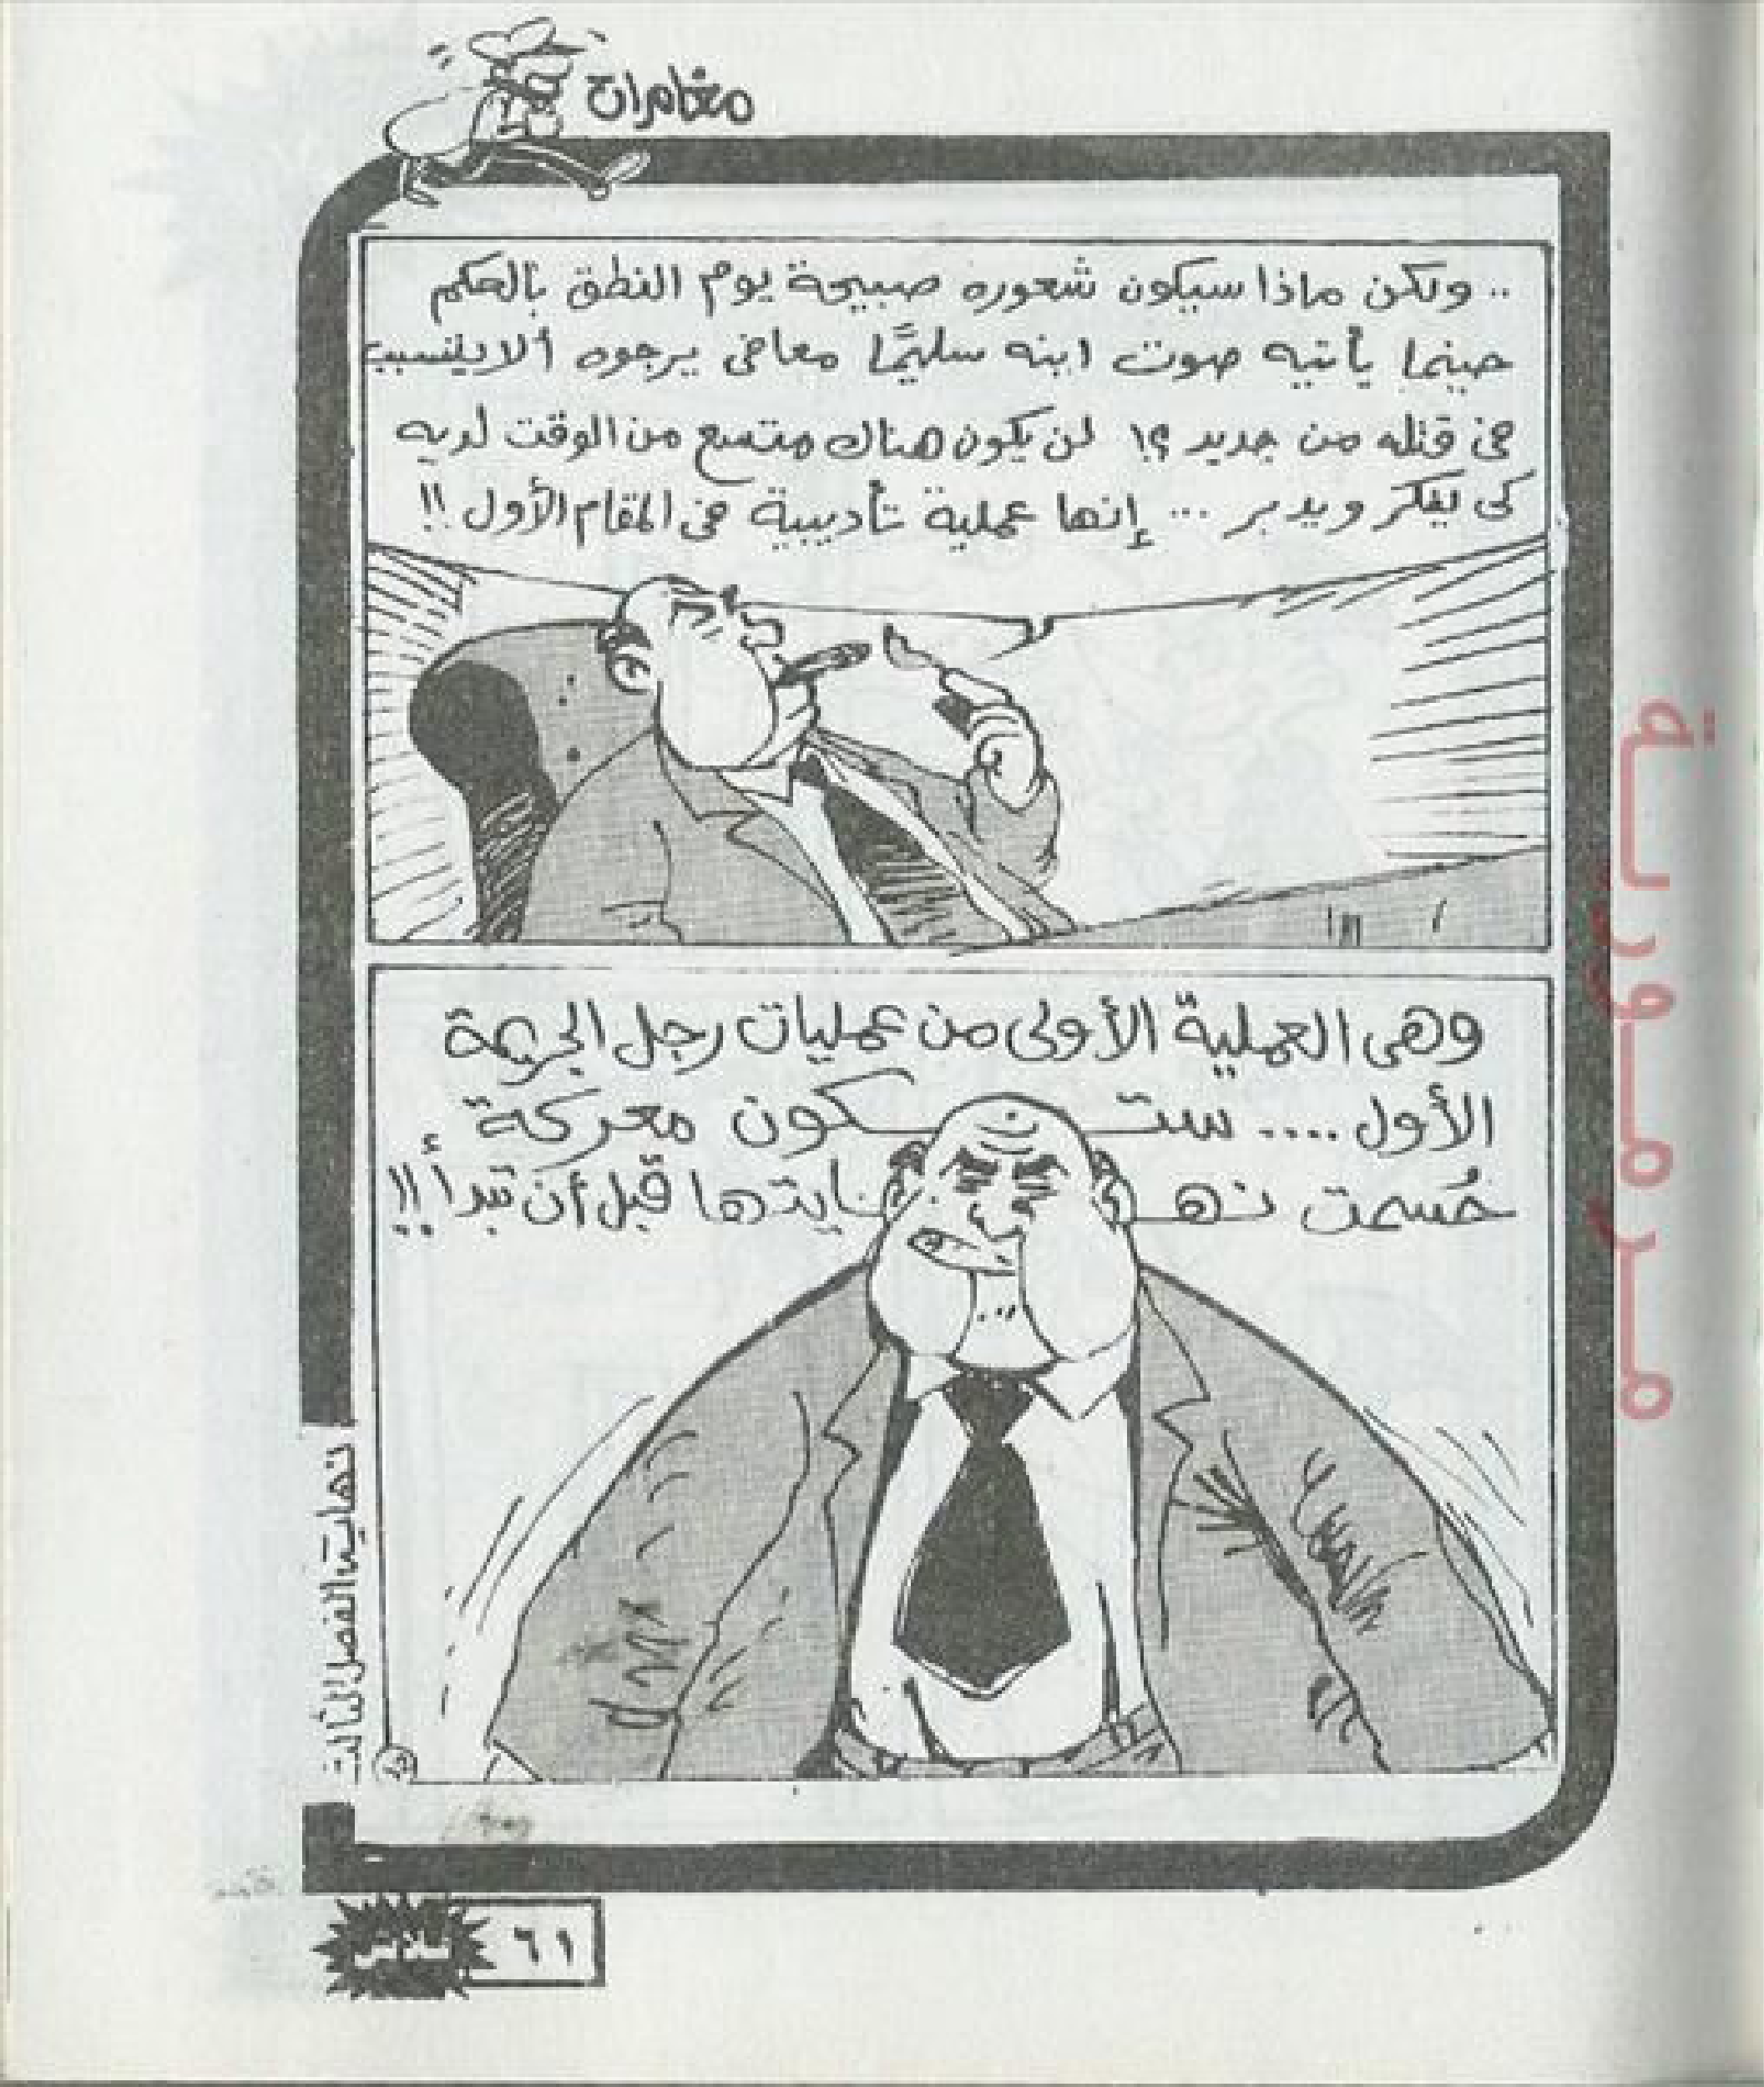 مغامرات
.. ولكن ماذا سيكون شعوره صبيحة يوم النطق بالحكم
حينما يأتيه صوت ابنه سليمًا معافى يرجوه ألا يتسبب
فى قتله من جديد ؟! لن يكون هناك متسع من الوقت لديه
كى يفكر ويدبر ... إنها عملية تأديبية فى المقام الأول !!
وهى العملية الأولى من عمليات رجل الجريمة
الأول .... ستكون معركة
حُسمت نهايتها قبل أن تبدأ !!
نهاية الفصل الثالث
٦١
مرمورية